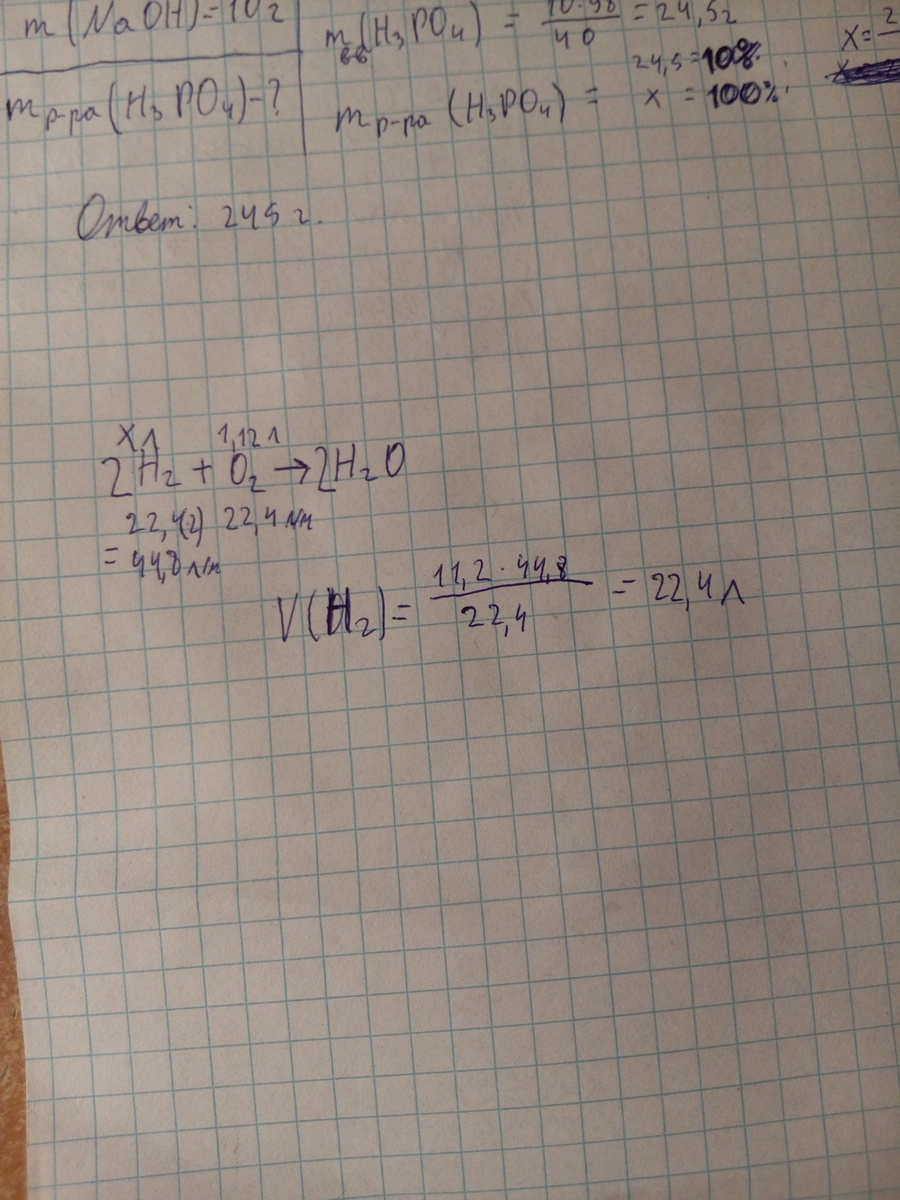 m(NaOH)=10г
m вв (H₃PO₄) = 10·98/40 = 24,5г
24,5 = 10%
x =
m р-ра (H₃PO₄) - ?
m р-ра (H₃PO₄) = x = 100%
Ответ: 245 г.
X л 1,12 л
2H₂ + O₂ → 2H₂O
22,4(2) 22,4 л/м
= 44,8 л/м
V(H₂) = 11,2 · 44,8 / 22,4 = 22,4 л